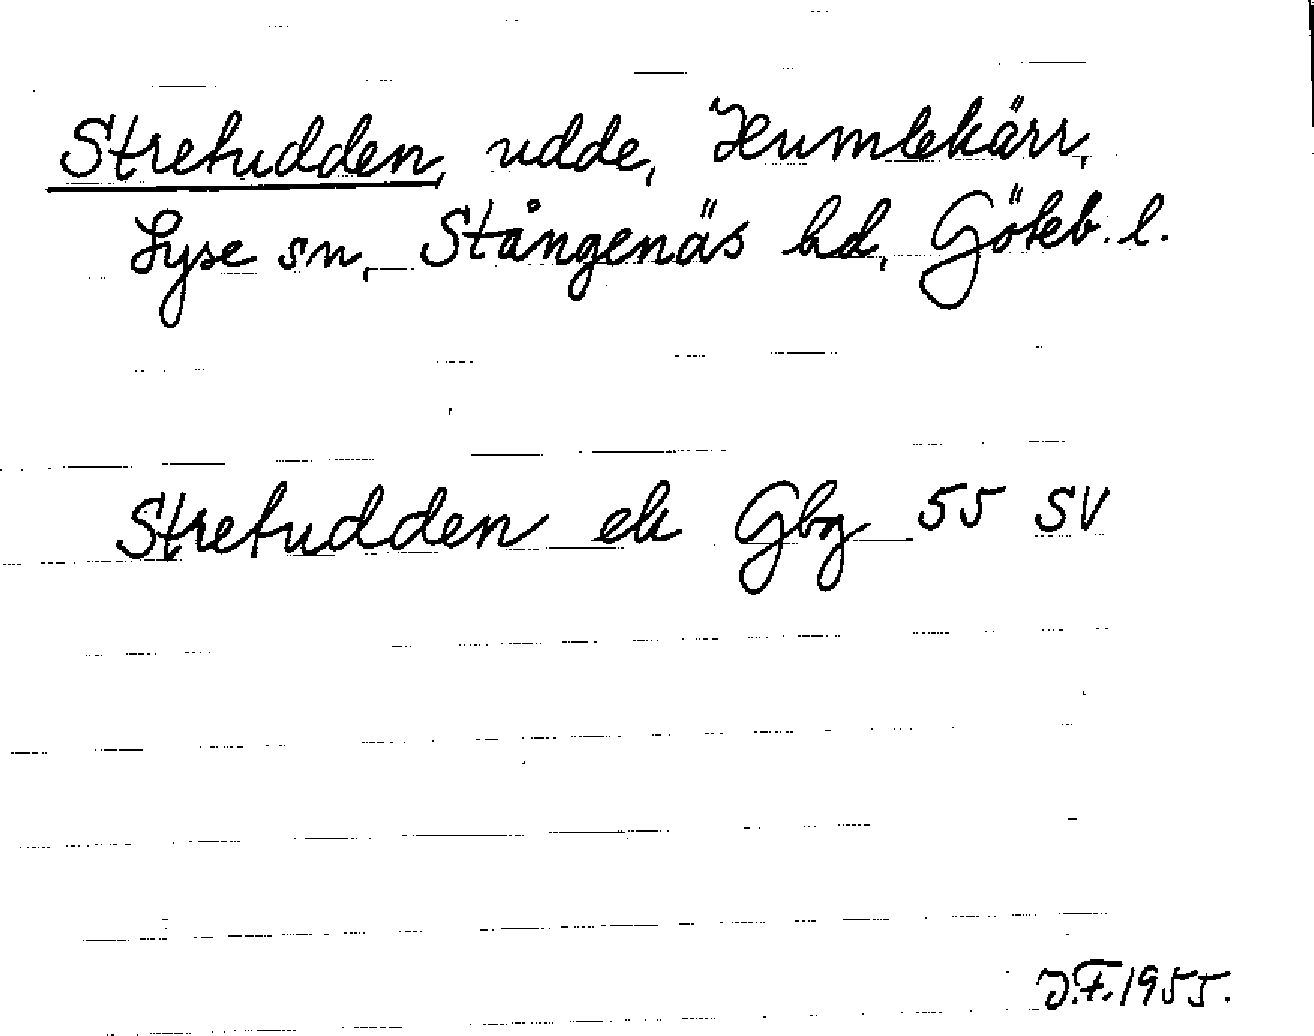 Stretudden, udde, Humlekärr,
Lyse sn, Stångenäs hd, Göteb. l.
Stretudden ek Gbg 55 SV
J.F. 1955.